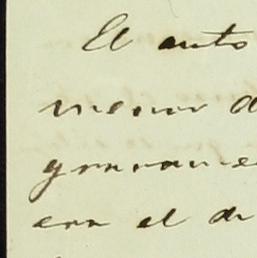 El auto
menor d
gravame
con el di